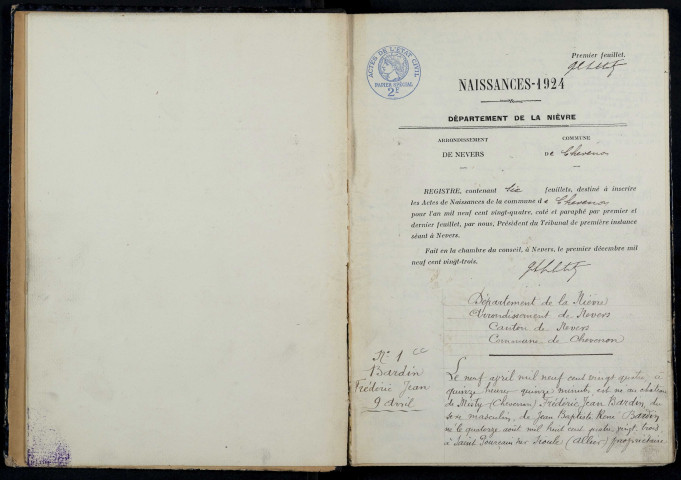 Premier feuillet.
ACTES DE L'ÉTAT CIVIL
PAPIER SPÉCIAL
2F
NAISSANCES-1924
DÉPARTEMENT DE LA NIÈVRE
ARRONDISSEMENT
DE NEVERS
COMMUNE
De Chevenon
REGISTRE, contenant six feuillets, destiné à inscrire
les Actes de Naissances de la commune de Chevenon
pour l'an mil neuf cent vingt-quatre, coté et paraphé par premier et
dernier feuillet, par nous, Président du Tribunal de première instance
séant à Nevers.
Fait en la chambre du conseil, à Nevers, le premier décembre mil
neuf cent vingt-trois.
Département de la Nièvre
Arrondissement de Nevers
Canton de Nevers
Commune de Chevenon
N° 1
Bardin
Frédéric Jean
9 avril
Le neuf avril mil neuf cent vingt quatre à
quinze heures quinze minutes, est né au château
de (Chevenon) Frédéric Jean Bardin, du
sexe masculin, de Jean Baptiste René Bardin
né le quatorze août mil huit cent quatre vingt trois
à Saint Pourçain sur Sioule (Allier) propriétaire